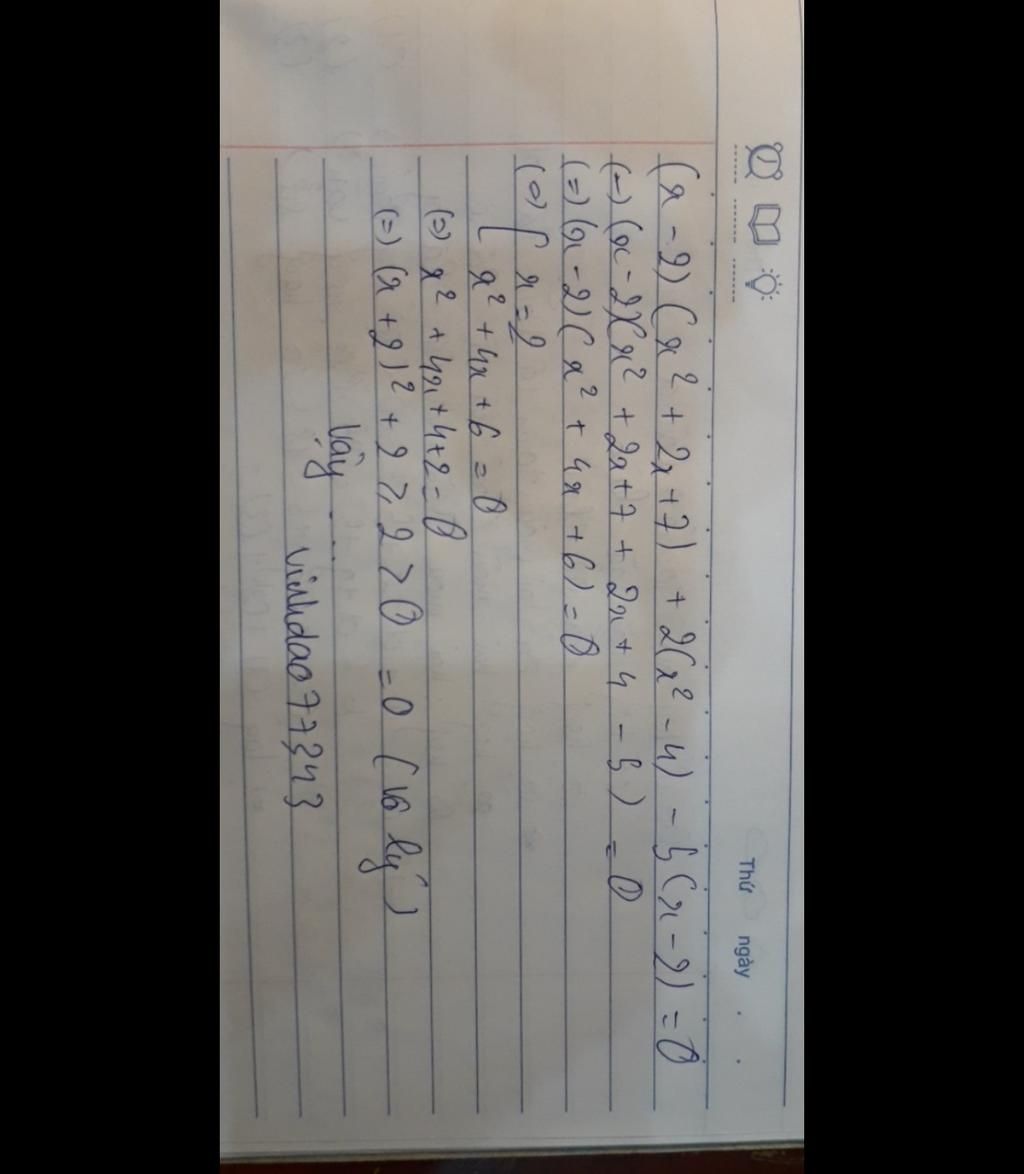 Thứ ngày . .
(x - 2) (x² + 2x + 7) + 2(x² - 4) - 5(x - 2) = 0
(=) (x - 2)(x² + 2x + 7 + 2x + 4 - 5) = 0
(=) (x - 2)(x² + 4x + 6) = 0
(=) [ x = 2
[ x² + 4x + 6 = 0
(=) x² + 4x + 4 + 2 = 0
(=) (x + 2)² + 2 ≥ 2 > 0 = 0 (vô lý)
Vậy ...
vinhdao77343